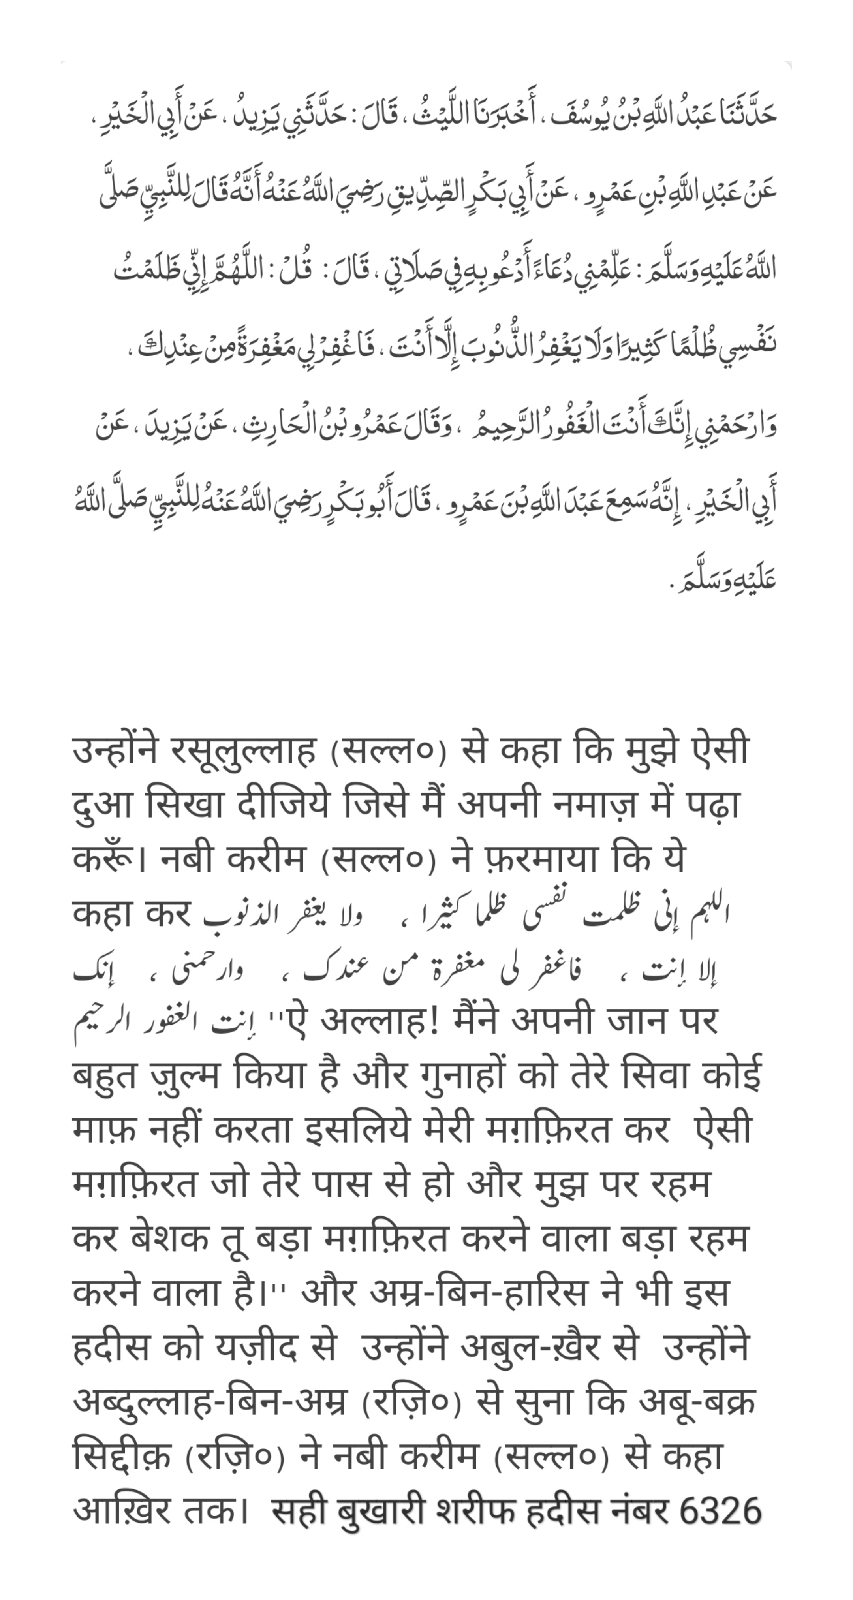 حَدَّثَنَا عَبْدُ اللَّهِ بْنُ يُوسُفَ ، أَخْبَرَنَا اللَّيْثُ ، قَالَ : حَدَّثَنِي يَزِيدُ ، عَنْ أَبِي الْخَيْرِ ،
عَنْ عَبْدِ اللَّهِ بْنِ عَمْرٍو ، عَنْ أَبِي بَكْرٍ الصِّدِّيقِ رَضِيَ اللَّهُ عَنْهُ أَنَّهُ قَالَ لِلنَّبِيِّ صَلَّى
اللَّهُ عَلَيْهِ وَسَلَّمَ : عَلِّمْنِي دُعَاءً أَدْعُو بِهِ فِي صَلَاتِي ، قَالَ : قُلْ : اللَّهُمَّ إِنِّي ظَلَمْتُ
نَفْسِي ظُلْمًا كَثِيرًا وَلَا يَغْفِرُ الذُّنُوبَ إِلَّا أَنْتَ ، فَاغْفِرْ لِي مَغْفِرَةً مِنْ عِنْدِكَ ،
وَارْحَمْنِي إِنَّكَ أَنْتَ الْغَفُورُ الرَّحِيمُ ، وَقَالَ عَمْرُو بْنُ الْحَارِثِ ، عَنْ يَزِيدَ ، عَنْ
أَبِي الْخَيْرِ ، إِنَّهُ سَمِعَ عَبْدَ اللَّهِ بْنَ عَمْرٍو ، قَالَ أَبُو بَكْرٍ رَضِيَ اللَّهُ عَنْهُ لِلنَّبِيِّ صَلَّى اللَّهُ
عَلَيْهِ وَسَلَّمَ .
उन्होंने रसूलुल्लाह (सल्ल०) से कहा कि मुझे ऐसी
दुआ सिखा दीजिये जिसे मैं अपनी नमाज़ में पढ़ा
करूँ। नबी करीम (सल्ल०) ने फ़रमाया कि ये
कहा कर اللہم إنی ظلمت نفسی ظلما کثیرا ، ولا یغفر الذنوب
إلا إنت ، فاغفر لی مغفرۃ من عندک ، وارحمنی ، إنک
إنت الغفور الرحیم ''ऐ अल्लाह! मैंने अपनी जान पर
बहुत ज़ुल्म किया है और गुनाहों को तेरे सिवा कोई
माफ़ नहीं करता इसलिये मेरी मग़फ़िरत कर ऐसी
मग़फ़िरत जो तेरे पास से हो और मुझ पर रहम
कर बेशक तू बड़ा मग़फ़िरत करने वाला बड़ा रहम
करने वाला है।'' और अम्र-बिन-हारिस ने भी इस
हदीस को यज़ीद से उन्होंने अबुल-ख़ैर से उन्होंने
अब्दुल्लाह-बिन-अम्र (रज़ि०) से सुना कि अबू-बक्र
सिद्दीक़ (रज़ि०) ने नबी करीम (सल्ल०) से कहा
आख़िर तक। सही बुखारी शरीफ हदीस नंबर 6326